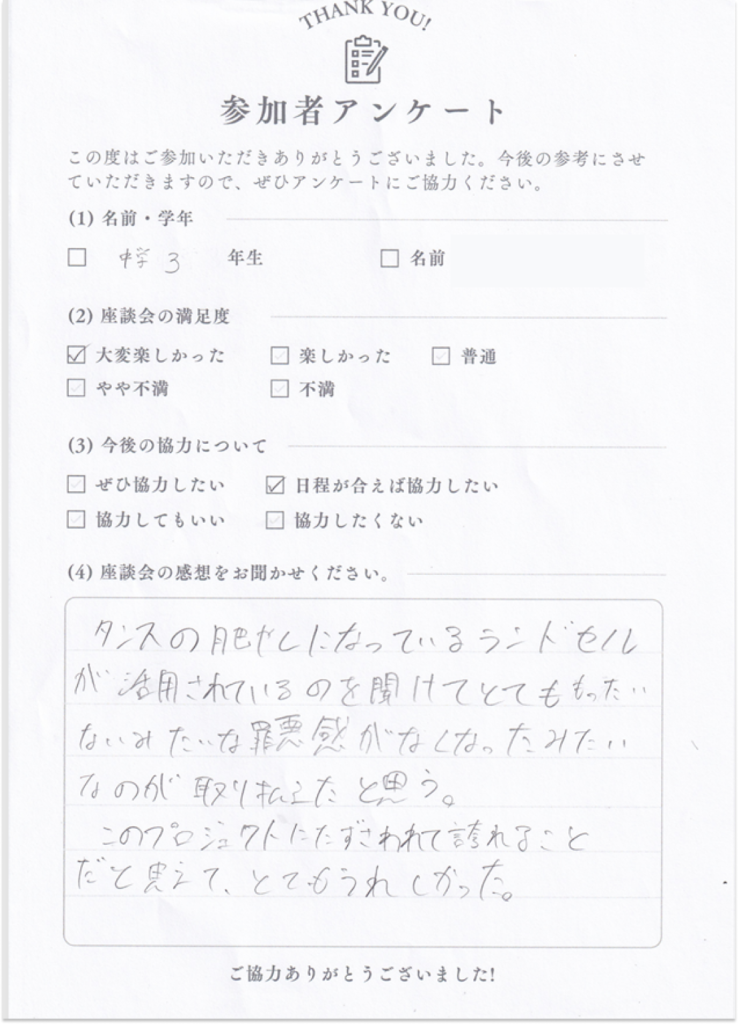 THANK YOU!
参加者アンケート
この度はご参加いただきありがとうございました。今後の参考にさせ
ていただきますので、ぜひアンケートにご協力ください。
(1) 名前・学年
☐ 中学3 年生 ☐ 名前
(2) 座談会の満足度
☑ 大変楽しかった ☐ 楽しかった ☐ 普通
☐ やや不満 ☐ 不満
(3) 今後の協力について
☐ ぜひ協力したい ☑ 日程が合えば協力したい
☐ 協力してもいい ☐ 協力したくない
(4) 座談会の感想をお聞かせください。
タンスの肥やしになっているランドセル
が活用されているのを聞けてとてももったい
ないみたいな罪悪感がなくなったみたい
なのが取り払えたと思う。
このプロジェクトにたずさわれて誇れること
だと思えて、とてもうれしかった。
ご協力ありがとうございました!